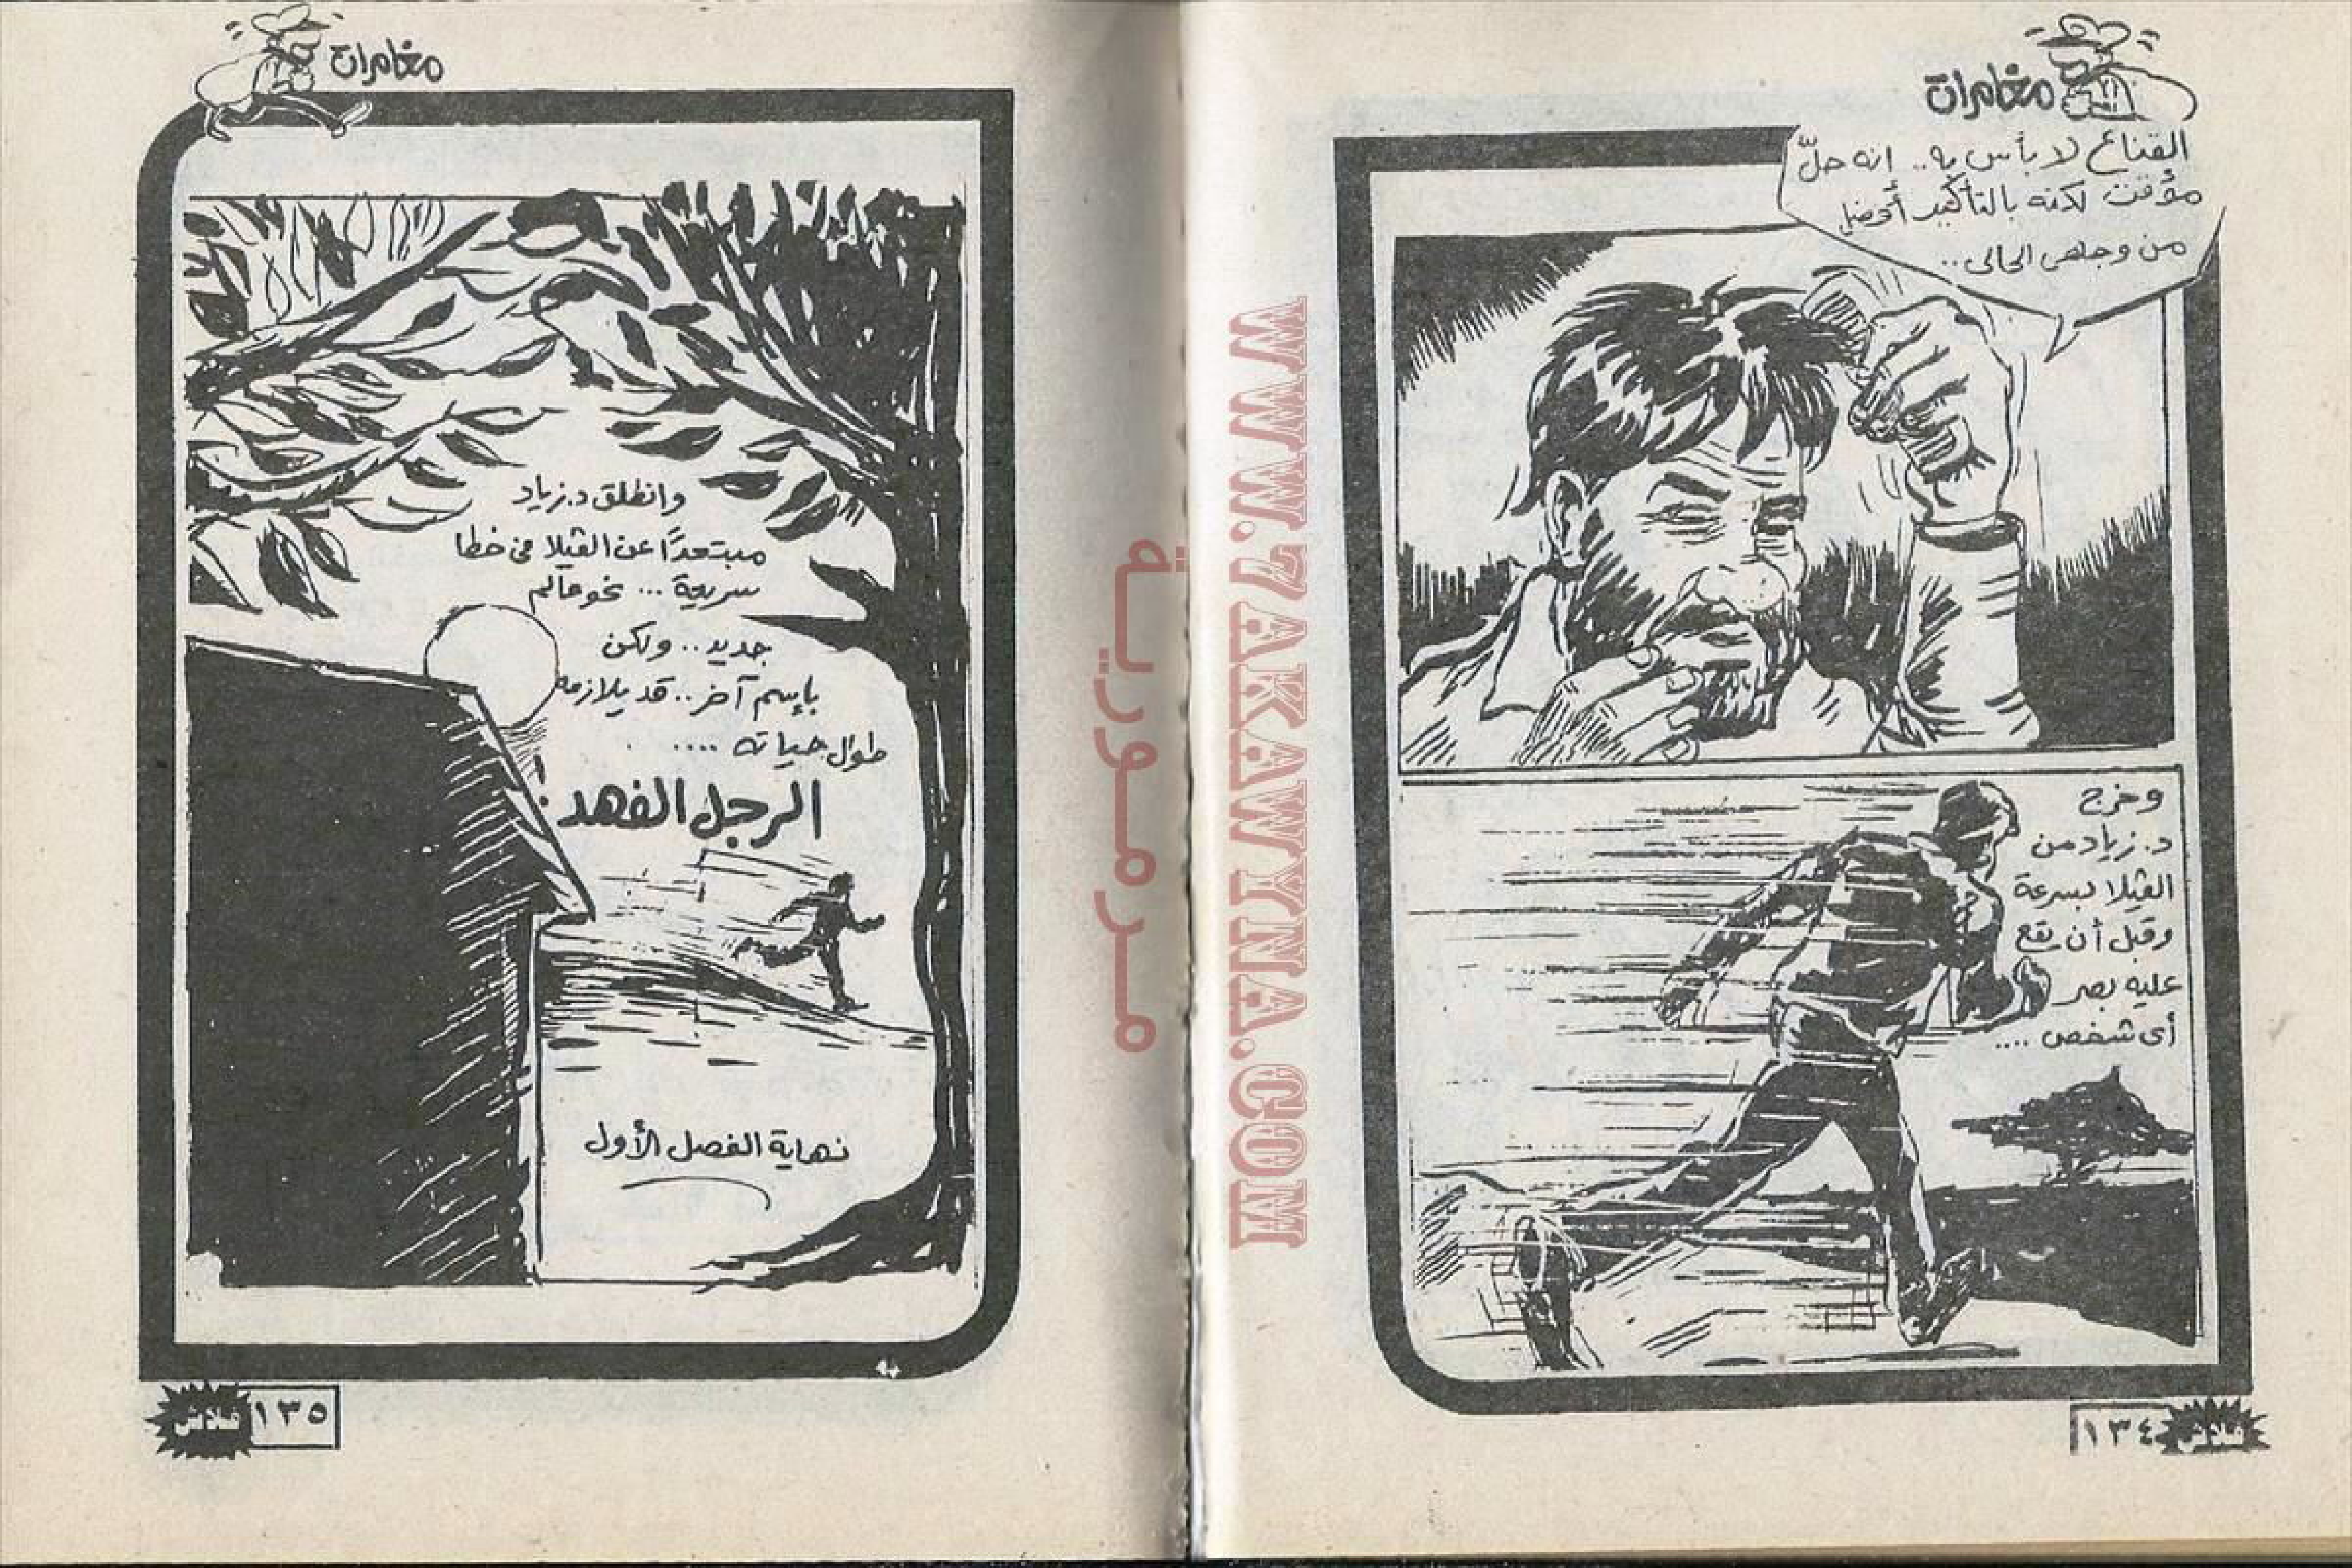 مغامرات
القناع لا بأس به.. انه حلّ
مؤقت لكنه بالتأكيد أفضل
من وجهى الحالى..
وخرج
د. زياد من
الڤيلا بسرعة
وقبل أن يقع
عليه بصر
أى شخص ....
١٣٤
فلاش
مغامرات
وانطلق د. زياد
مبتعدًا عن الڤيلا فى خطا
سريعة ... نحو عالم
جديد .. ولكن
بإسم آخر .. قد يلازمه
طوال حياته ....
الرجل الفهد !
نهاية الفصل الأول
١٣٥
فلاش
مرمورية
WWW.7AKAWYNA.COM